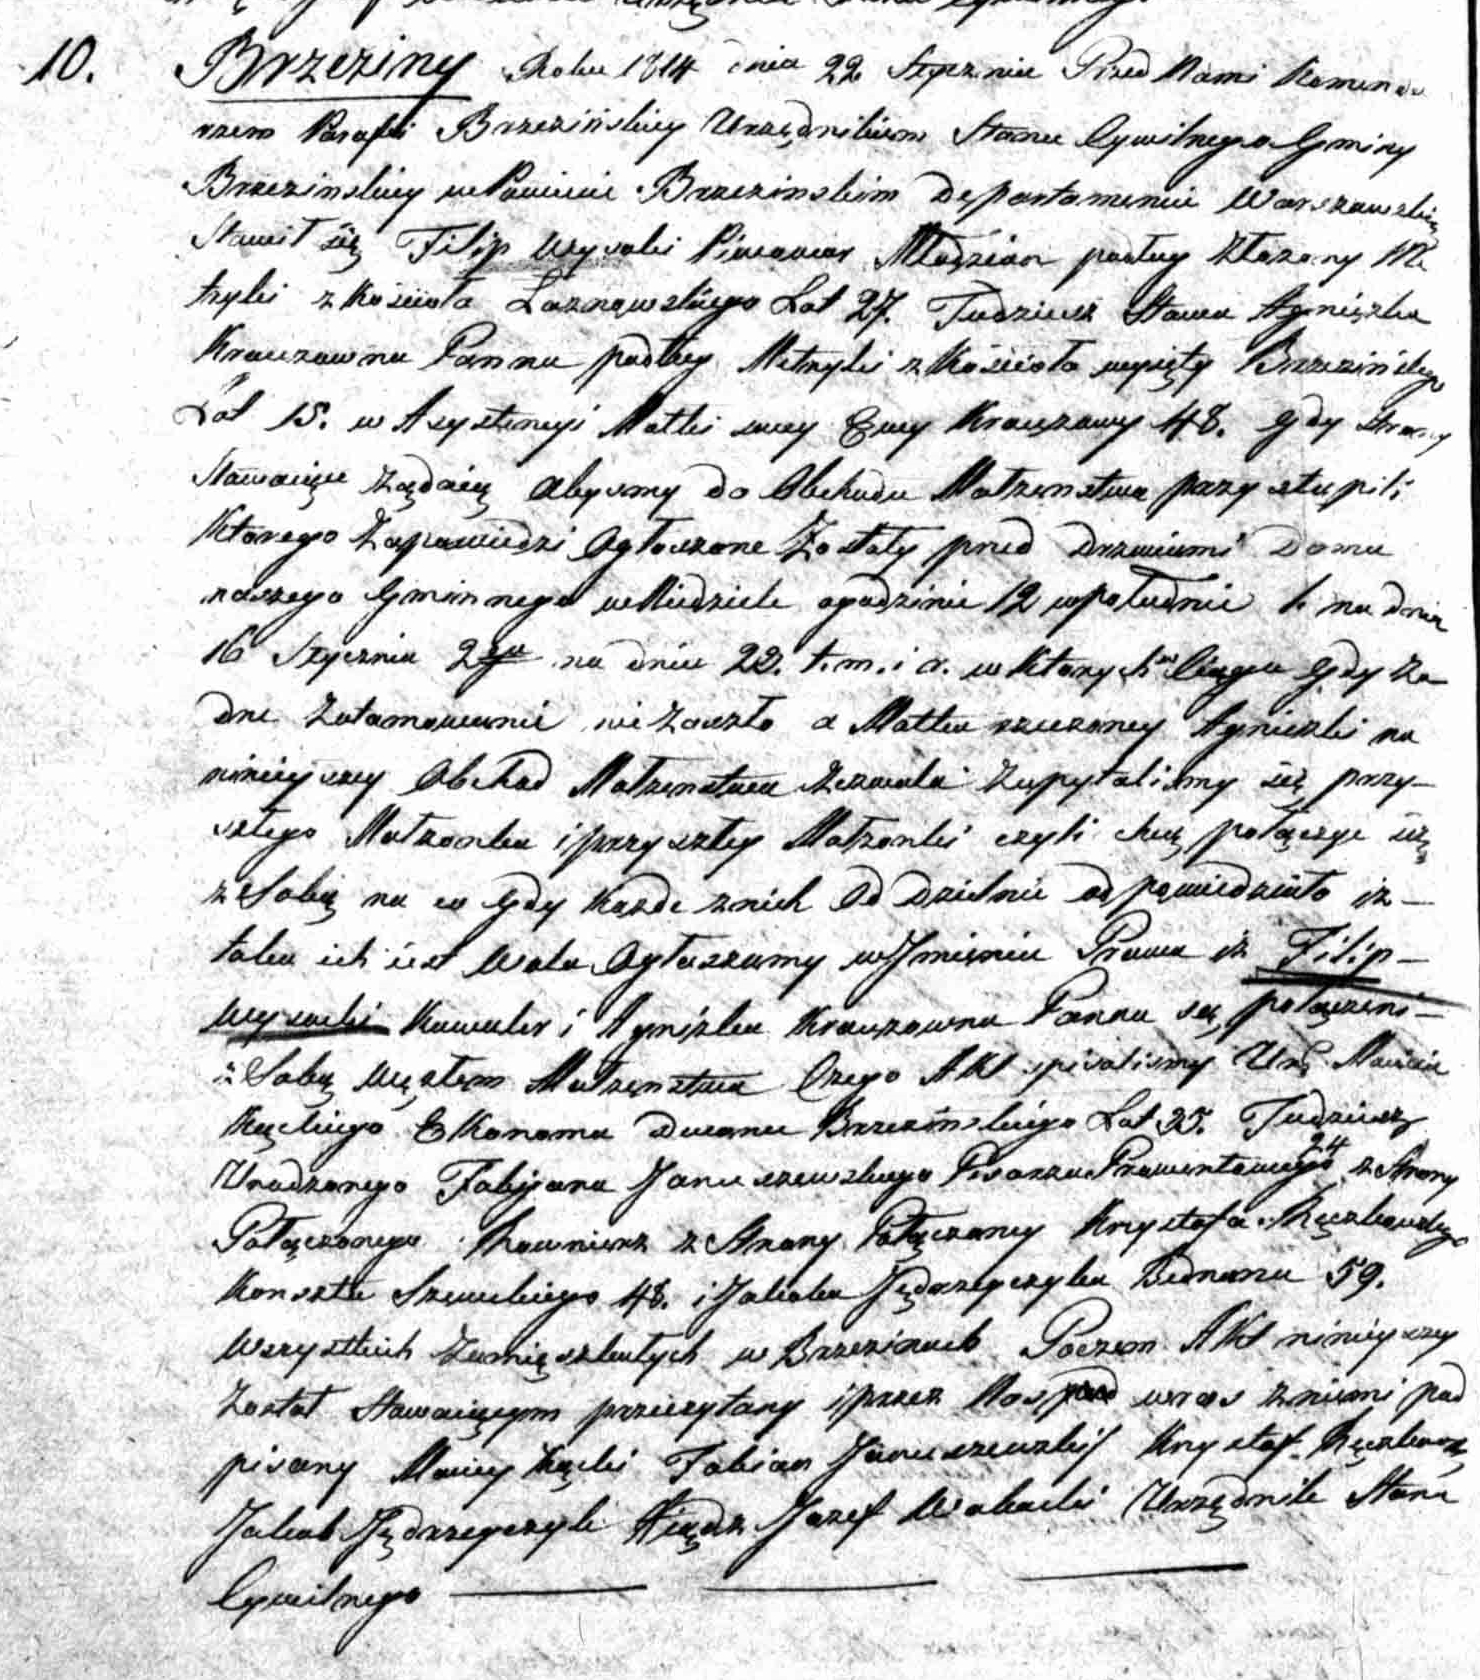 10. Brzeziny Roku 1814 dnia 22 Stycznia Przed Nami Komenda
rzem Parafii Brzezińskiey Urzędnikiem Stanu Cywilnego Gminy
Brzezinskiey w Powiecie Brzezinskim Departamencie Warszawskim
Stawił się Filip Wysocki Piwowar Młodzian podług złożony Me
tryki z kościoła Łaznowskiego Lat 27. Tudziesz Stawa Agnieszka
Krauzowna Panna podług Metryki z Kościoła wyięty Brzezińskiego
Lat 15. w Asystencyi Matki swey Ewy Krauzowy 48. gdy strony
Stawaiące żądaią abysmy do Obchodu Małzenstwa przystąpili
Ktorego Zapowiedzi Ogłoszone Zostały przed drzwiami Domu
naszego Gminnego w Niedziele o godzinie 12 w południe 1. na dniu
16 Stycznia 2ga na dniu 23. t. m. i r. w ktorych Ciągu gdy Ża
dne Zatamowanie nie Zaszło a Matka rzeczoney Agnieszki na
ninieyszey Obchod Małzenstwa Zezwala Zapytalismy się przy-
szłego Małzonka i przyszłey Małzonki czyli chcą połączyc się
z Sobą na co gdy każde z nich Oddzielnie odpowiedziało iz-
taka ich iest Wola Ogłaszamy w Jmieniu Prawa iż Filip-
Wysocki Kawaler i Agniszka Krauzowna Panna są połączeni-
z Sobą węzłem Małzenstwa Czego Akt spisalismy Ur. Macieia
Kąckiego Ekonoma Dworu Brzezińskiego Lat 35. Tudziesz
Urodzonego Fabijana Januszewskiego Pisarza Prowentowego 24 z Strony
Połączonego Rownierz z Strony Połączoney Krystofa
Konszta Szewckiego 48. i Jakuba Jędrzejczyka Bednarza 59.
Wszystkich Zamięszkałych w Brzezinach Poczem Akt ninieyszy
Został Stawaiącym przeczytany i przez Nas wraz z niemi pod
pisany Maciey Kącki Fabian Januszewski Krystof
Jakub Jędrzejczyk Xiądz Jozef Urzędnik Stanu
Cywilnego